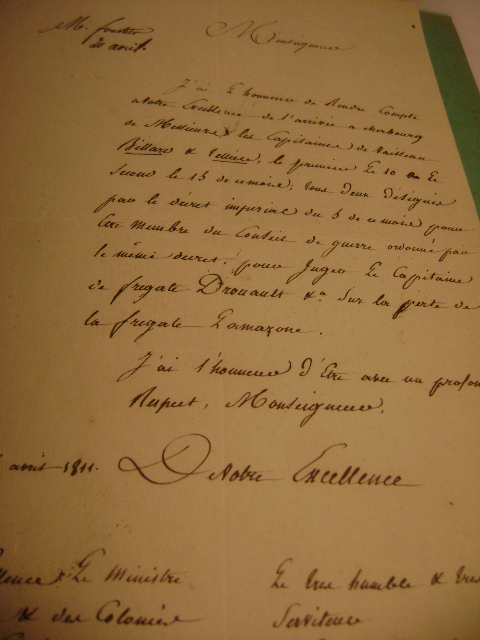 20 avril.
Monseigneur
J'ai l'honneur de Rendre Compte
a Votre Excellence de l'arrivée a cherbourg
de Messieurs les Capitaines de Vaisseau
Billard & Vellue, le premier le 10 & le
Second le 15 de ce mois; tous deux désignés
par le décret impérial du 5 de ce mois pour
être membre du Conseil de guerre ordonné par
le même décret, pour Juger le Capitaine
de frégate Drouault &a Sur la perte de
la fregate L'amazone.
J'ai l'honneur d'Etre avec un profon
Respect, Monseigneur,
avril 1811.
De Votre Excellence
llence Le Ministre
& des Colonies
Le très humble & très
Serviteur